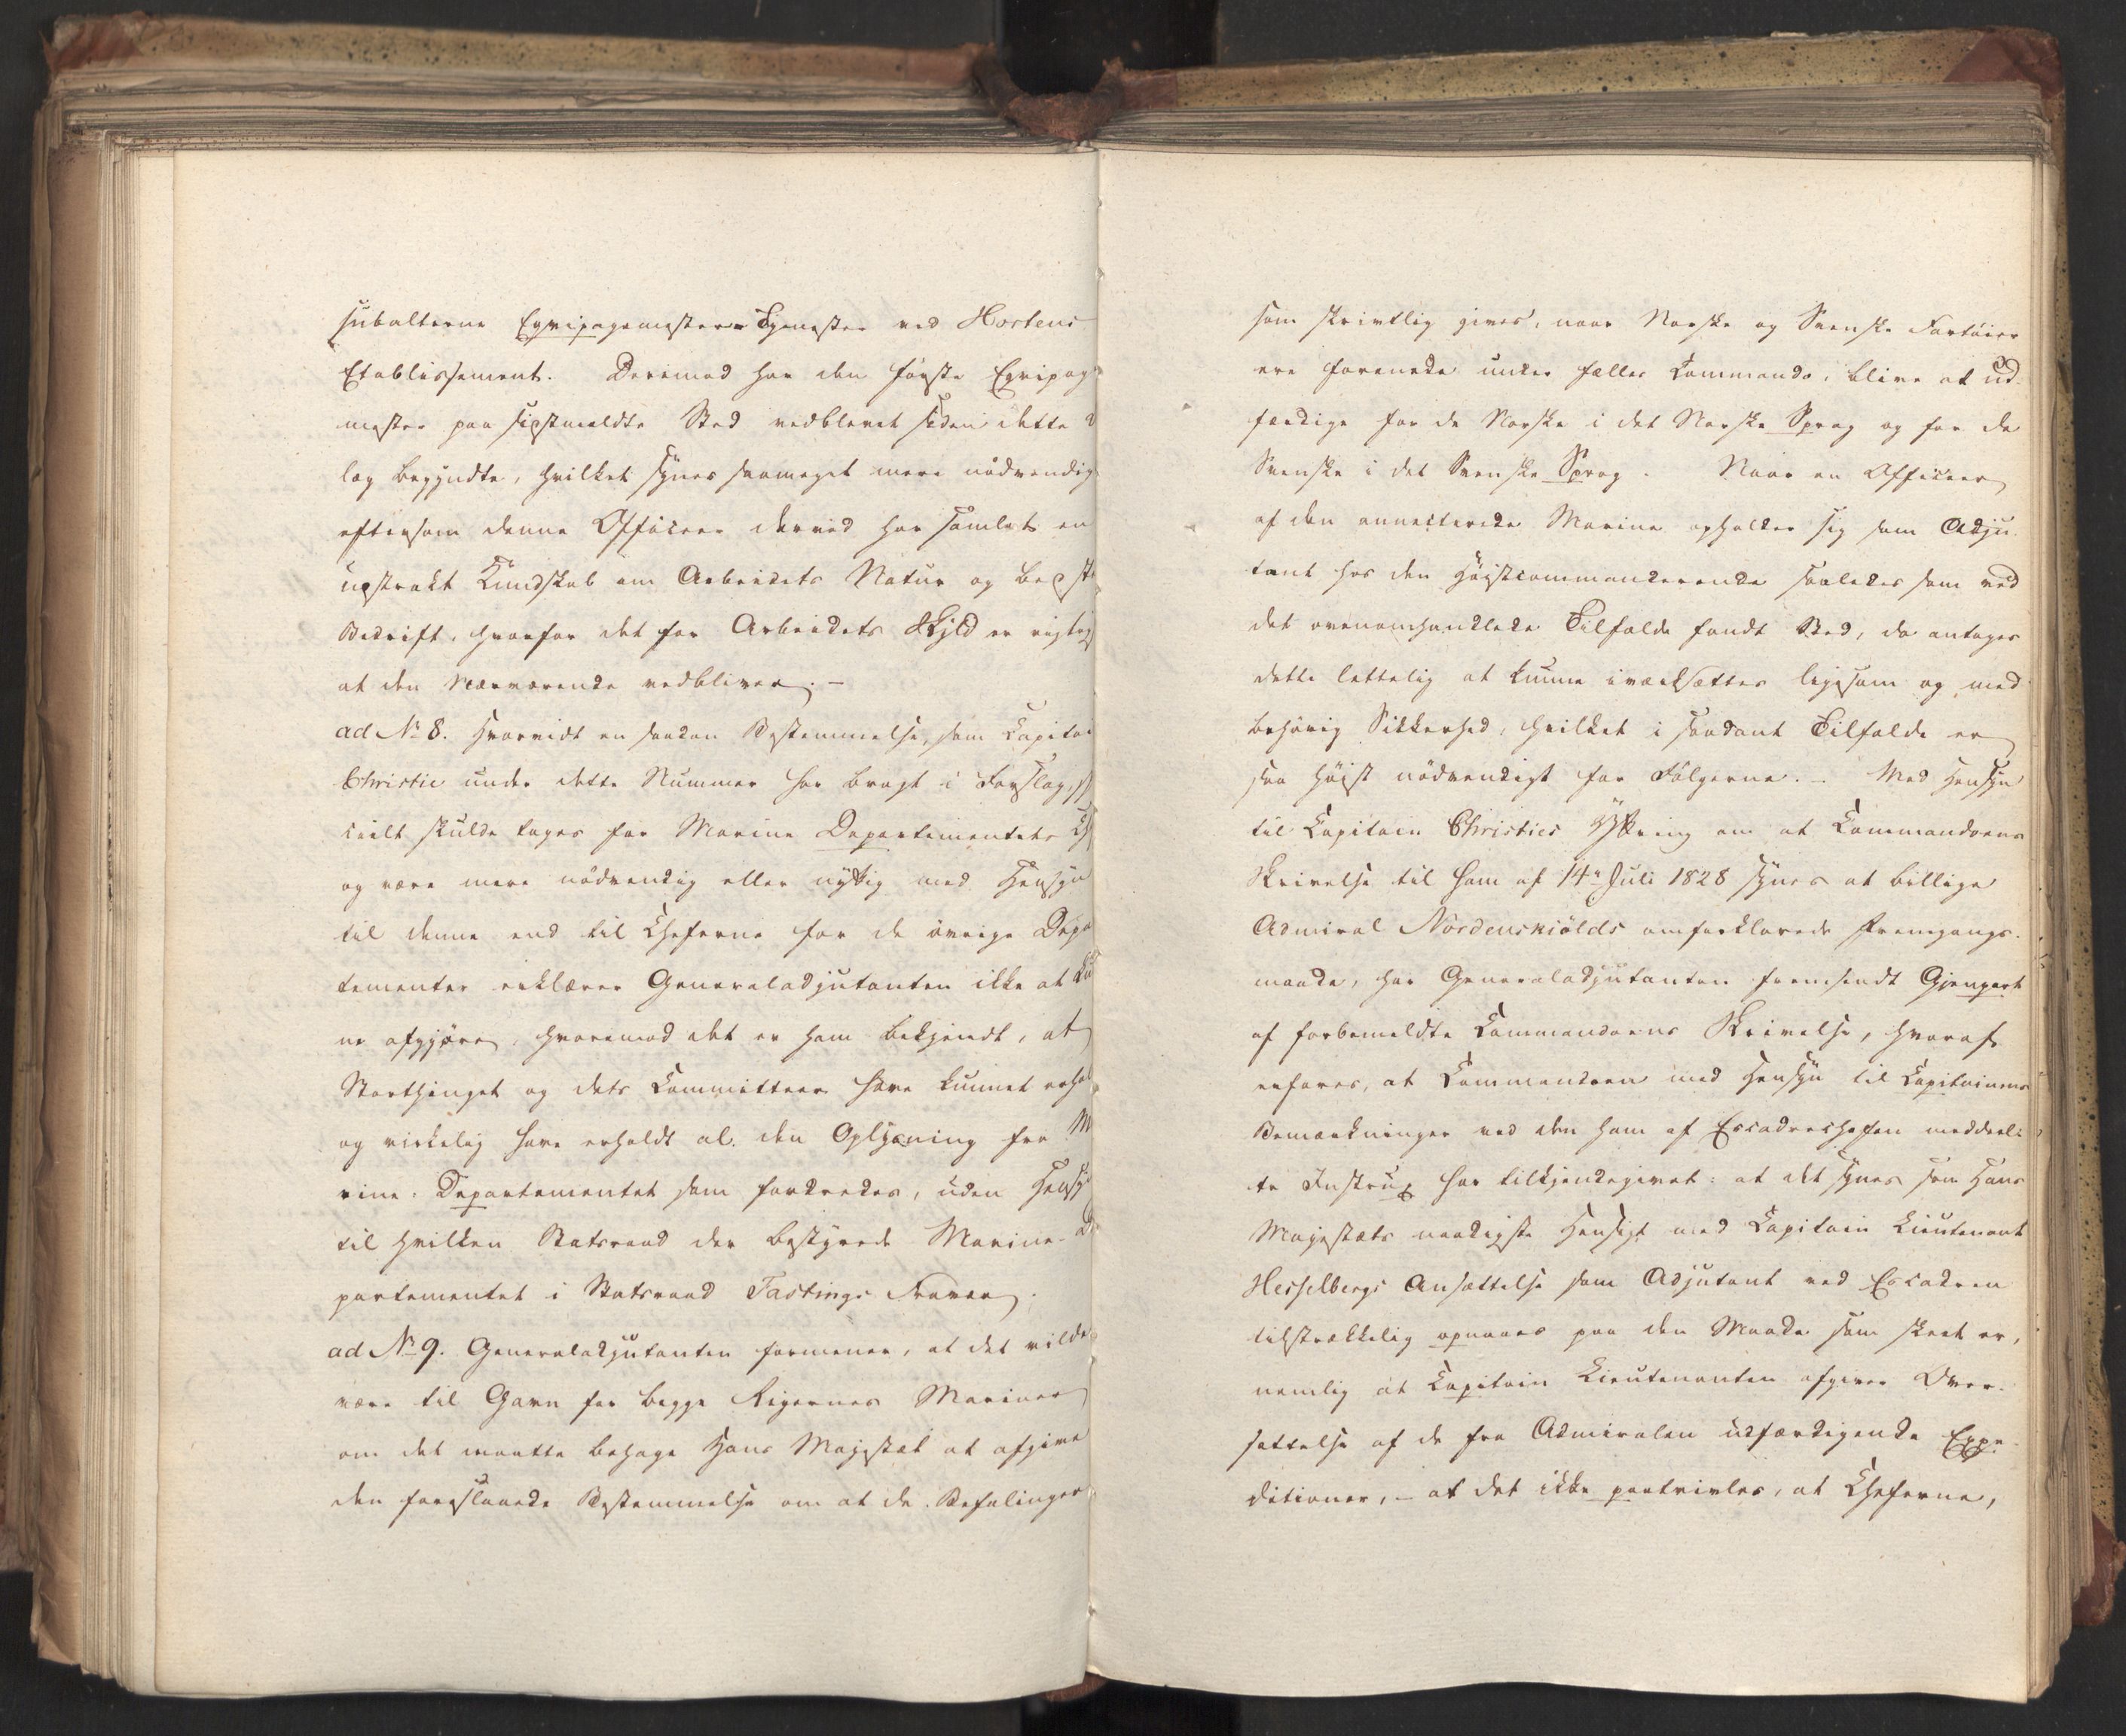 subalterne Eqvipagemester Tjenester ved Hortens
Etablissement. Derimod har den første Eqvipage
mester paa sidstmeldte Sted vedblevet siden dette An
læg begyndte, hvilket synes saameget mere nødvendigt
eftersom denne Officeer derved har samlet en
udstrakt Kundskab om Arbeidets Natur og bedste
Bedrift, hvorfor det for Arbeidets Skyld er vigtigt
at den Nærværende vedbliver. –
ad № 8. Hvorvidt en saadan Bestemmelse, som Capitai
Christie under dette Nummer har bragt i Forslag, spe
cielt skulde tages for Marine Departementets Ch
og være mere nødvendig eller nyttig med Hensyn
til denne end til Cheferne for de øvrige Depar
tementer erklærer Generaladjutanten ikke at kun
ne afgjøre, hvorimod det er ham bekjendt, at
Storthinget og dets Committeer have kunnet erhol
og virkelig have erholdt al den Oplysning fra Ma
rine-Departementet som fordredes, uden Hensyn
til hvilken Statsraad der bestyrede Marine-De
partementet i Statsraad Fastings Fravær.
ad № 9. Generaladjutanten formener, at det vilde
være til Gavn for begge Rigernes Mariner
om det maatte behage Hans Majestæt at afgive
den foreslaaede Bestemmelse om at de Befalinger
som skrivtlig gives, naar Norske og Svenske Fartøier
ere forenede under fælles Commando, blive at ud-
færdige for de Norske i det Norske Sprog og for de
Svenske i det Svenske Sprog. Naar en Officeer
af den annecterede Marine opholder sig som Adju-
tant hos den Høistcommanderende saaledes som ved
det ovenomhandlede Tilfælde fandt Sted, da antages
dette lettelig at kunne iværksættes ligesom og med
behørig Sikkerhed, hvilket i saadant Tilfælde er
saa høist nødvendigt for Følgerne. – Med Hensyn
til Capitain Christies Yttring om at Commandoens
Skrivelse til ham af 14de Juli 1828 synes at billige
Admiral Nordenskiölds omforklarede Fremgangs-
maade, har Generaladjutanten fremsendt Gjenpart
af forbemeldte Commandoens Skrivelse, hvoraf
erfares, at Commandoen med Hensyn til Capitainens
Bemærkninger ved den ham af Escadrechefen meddeel-
te Instrux har tilkjendegivet: at det synes som Hans
Majestæts naadigste Hensigt med Capitain Lieutenant
Hesselbergs Ansættelse som Adjutant ved Escadren
tilstrækkelig opnaaes paa den Maade som skeet er,
nemlig at Capitain Lieutenanten afgiver Over-
sættelse af de fra Admiralen udfærdigende Expe-
ditioner, – at det ikke paatvivles, at Cheferne,